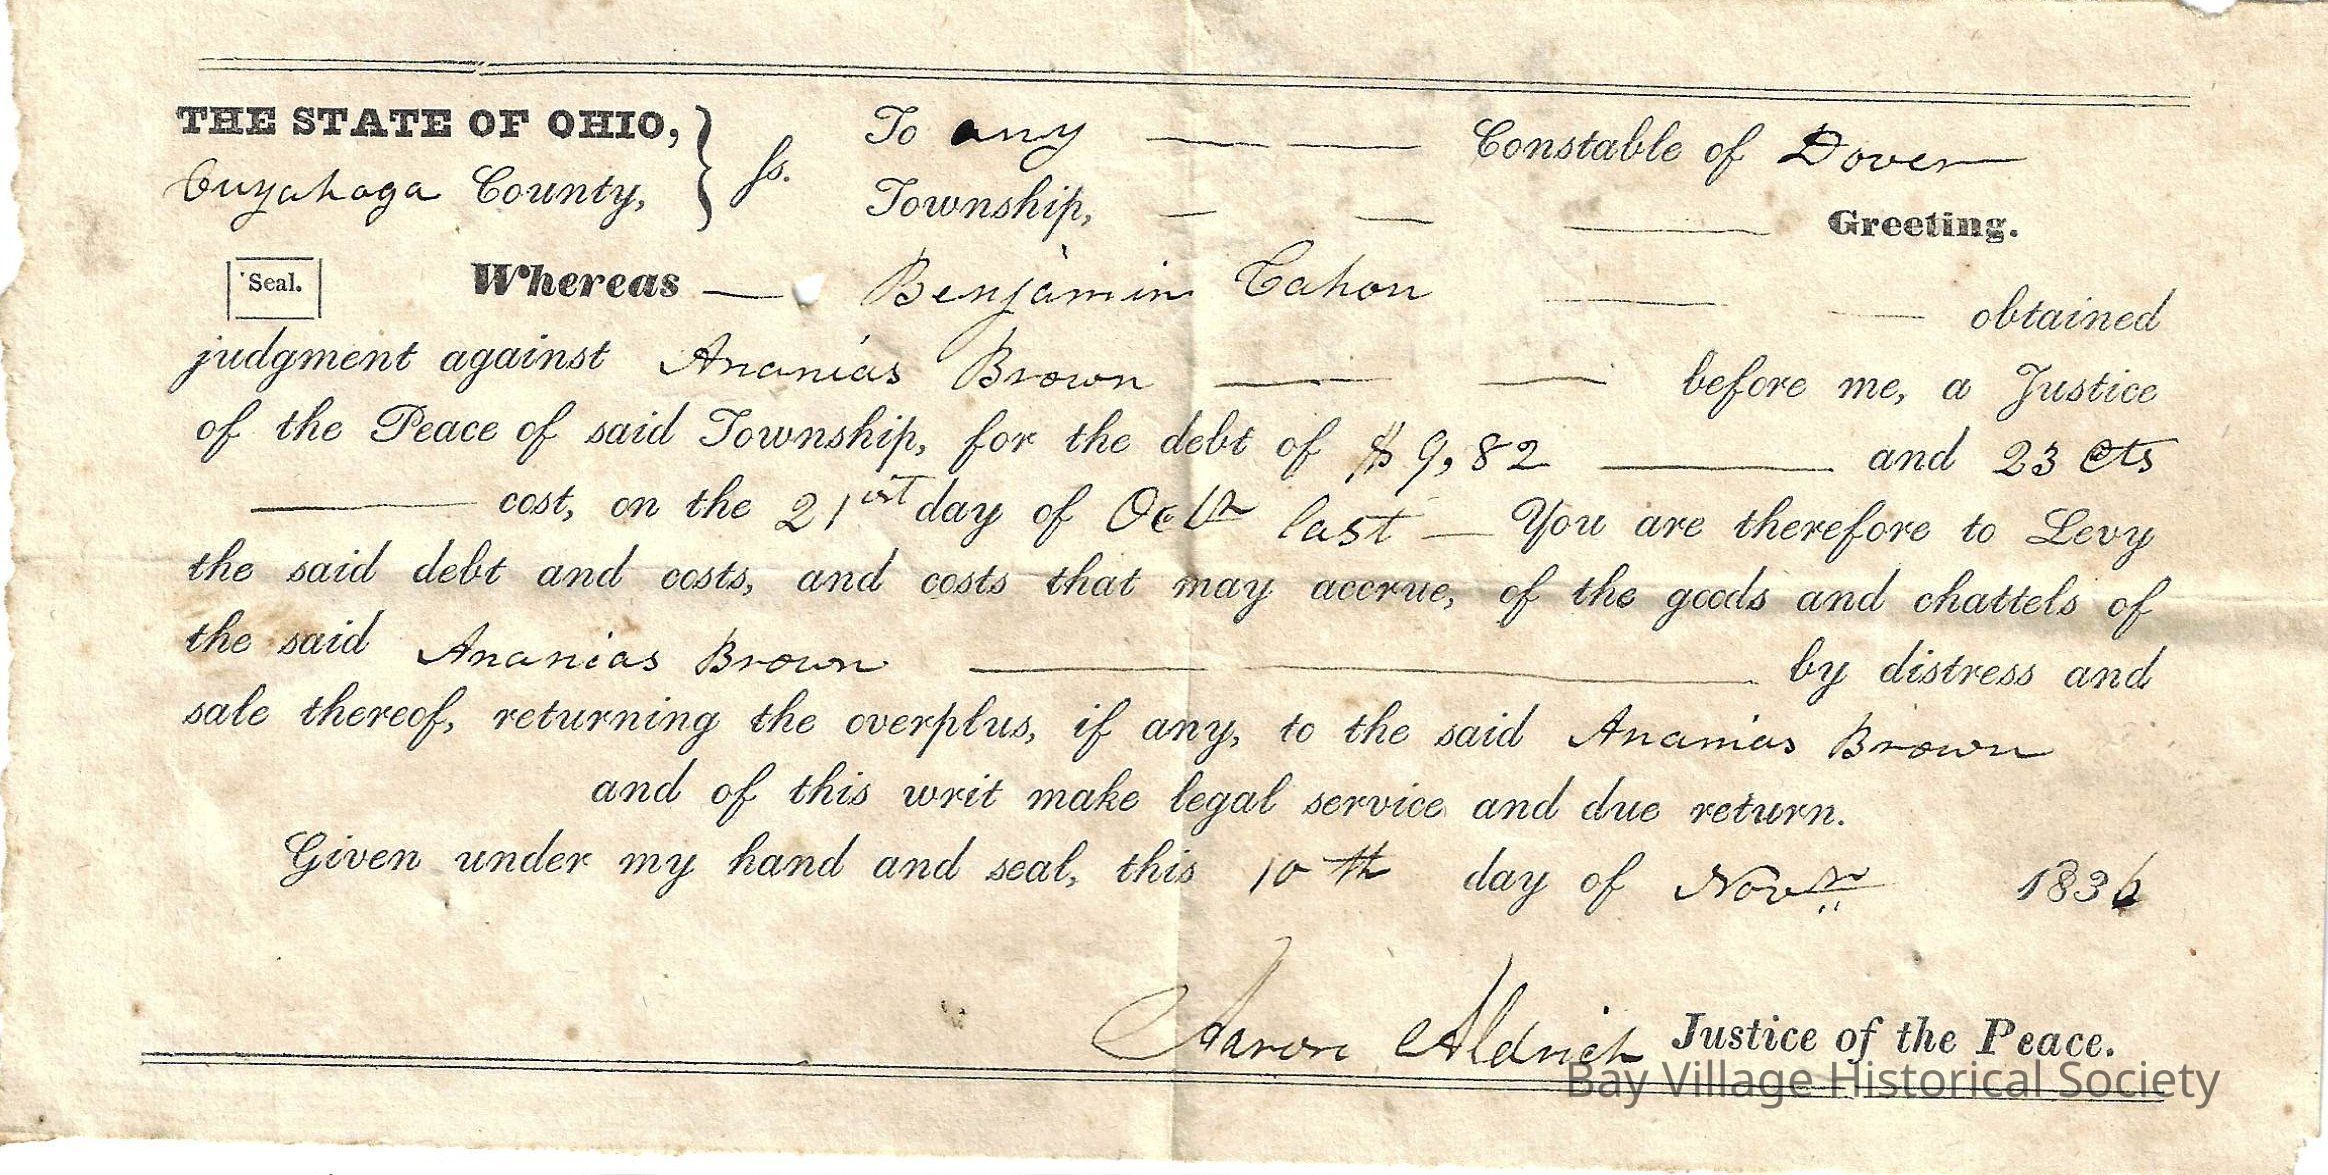 THE STATE OF OHIO, } ss. To any Constable of Dover
Cuyahoga County, Township, Greeting.
Seal. Whereas Benjamin Cahon obtained
judgment against Ananias Brown before me, a Justice
of the Peace of said Township, for the debt of $9,82 and 23 cts
cost, on the 21st day of Octr last You are therefore to Levy
the said debt and costs, and costs that may accrue, of the goods and chattels of
the said Ananias Brown by distress and
sale thereof, returning the overplus, if any, to the said Ananias Brown
and of this writ make legal service and due return.
Given under my hand and seal, this 10th day of Novr 1836
Aaron Aldrich Justice of the Peace.
Bay Village Historical Society